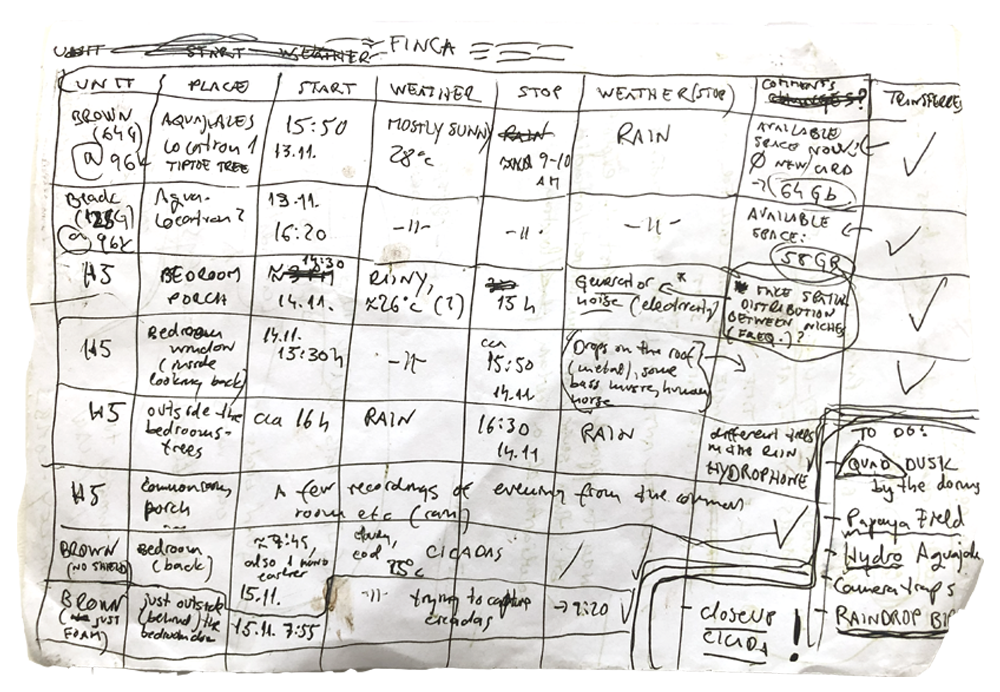 UNIT START WEATHER
FINCA
UNIT PLACE START WEATHER STOP WEATHER (STOP) COMMENTS TRANSFERRED
BROWN
(64G)
@ 96k
AGUAJALES
Location 1
TIPTOE TREE
15:50
13.11.
MOSTLY SUNNY
28°C
RAIN
9-10
AM
RAIN
AVAILABLE
SPACE NOW:
Ø NEW CARD
→ 64 Gb
✓
Black
(128G)
@ 96k
Agua-
Location 2
13.11.
16:20
-11-
-11-
-11-
AVAILABLE
SPACE:
58 GB
✓
H5
BEDROOM
PORCH
14:30
14.11.
RAINY,
≈26°C (?)
15h
Generator *
noise (electricity)
* FAKE
DISTRIBUTION
BETWEEN NICHES
(FREQ.)?
✓
H5
Bedroom
window
(inside
looking back)
14.11.
15:30h
-11-
cca
15:50
14.11
Drops on the roof
(metal), some
bass music, human
noise
✓
H5
outside the
bedrooms-
trees
cca 16h
RAIN
16:30
14.11
RAIN
different trees
in the RAIN
HYDROPHONE
✓
H5
porch
A few recordings of evening from the common
room etc (rain)
✓
BROWN
(NO SHIELD)
Bedroom
(back)
≈7:45,
also 1
earlier
15.11.
cool
25°C
CICADAS
/
✓
BROWN
(JUST
FOAM)
just outside
(behind) the
bedroom
15.11. 7:55
-11-
trying to capture
cicadas
→ 9:20
✓
- closeup
CICADA !
TO DO:
- QUAD DUSK
by the dorms
- Papaya Field
- Hydro Aguajale
- Camera traps
- RAINDROP